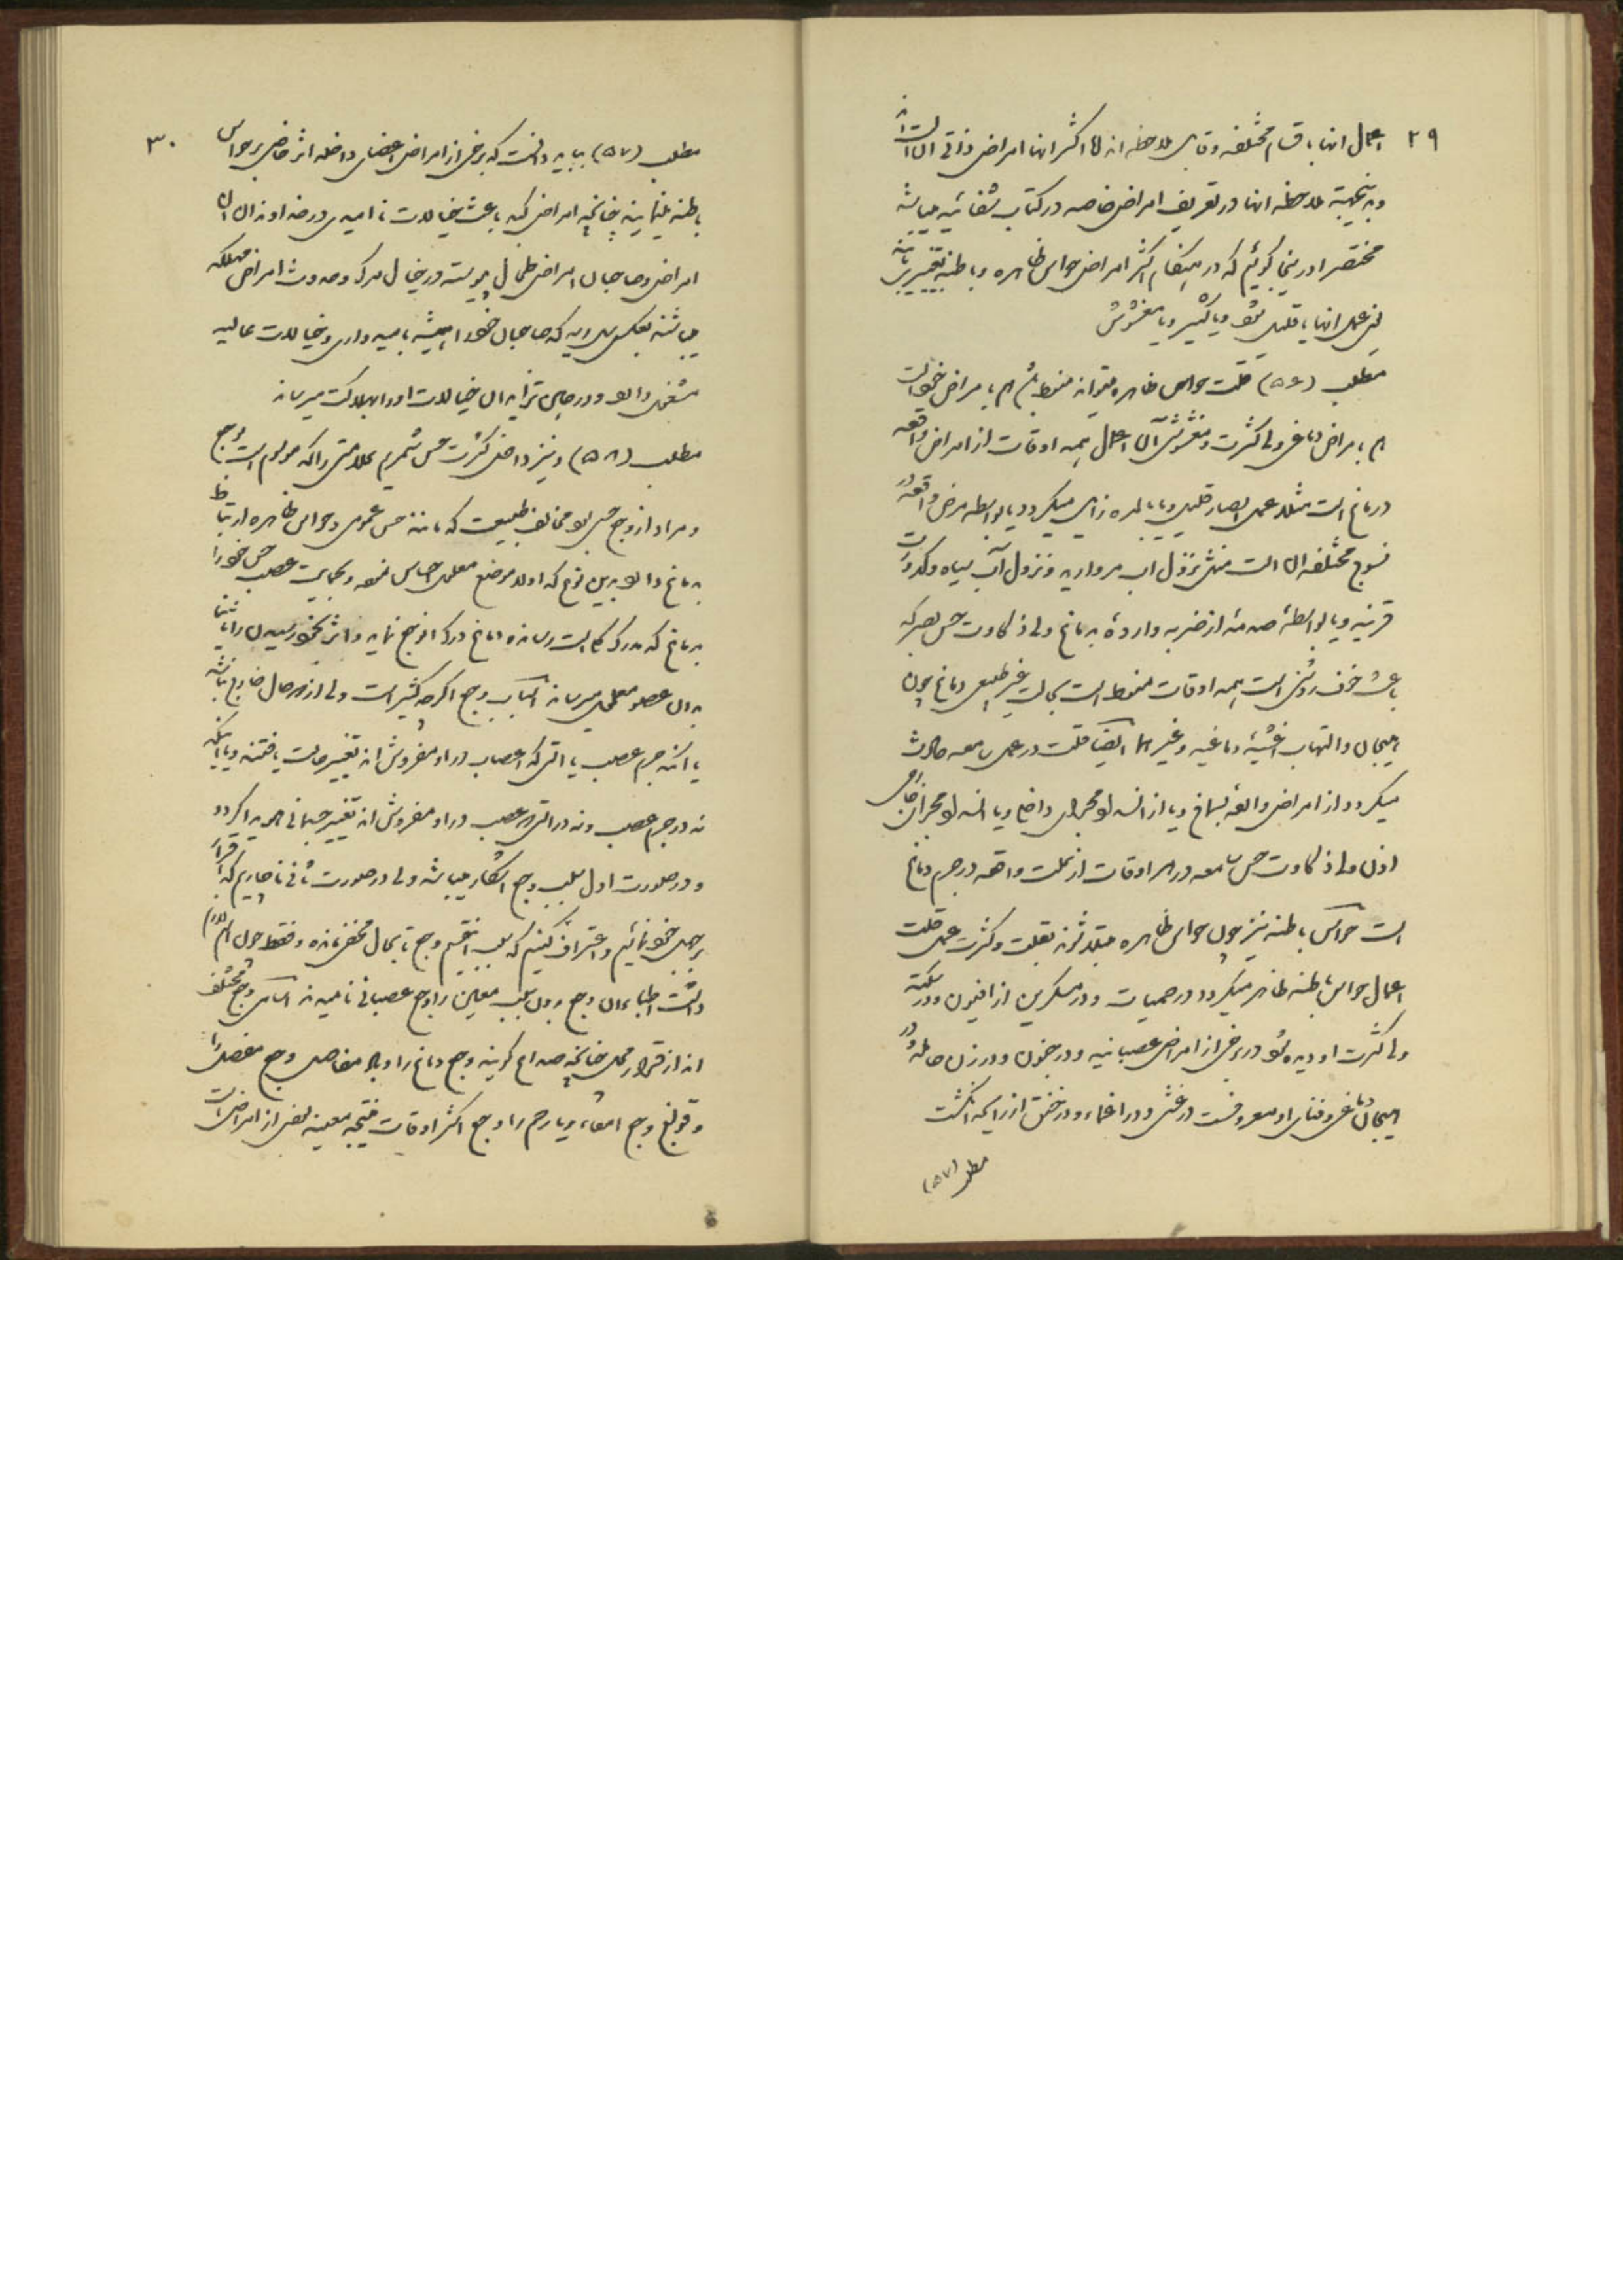 ۲۹
اعمال انها باقسام مختلفه وقابل ملاحظه اند لهذا اکثر انها امراض ذاتی الات است
وبدینجهته ملاحظه انها در تعریف امراض خاصه در کتاب شفائیه میباشد
مختصرا در اینجا گوئیم که در هنگام اکثر امراض حواس ظاهره وباطنه تغییر یابند
یعنی عمل انها یا قلیل شود ویا کثیر ویا مغشوش
مطلب (۵۶) قلت حواس ظاهره میتواند منوط باشد هم بامراض خود الت
هم بامراض دماغی ولی کثرت ومغشوشی آن اعمال همه اوقات از امراض واقعه
در دماغ است مثلا عمل ابصار قلیل ویا بالمره زایل میگردد یا بواسطه مرض واقعه در
نسوج مختلفه ان الت مثل نزول اب مروارید ونزول آب سیاه وکدورات
قرنیه ویا بواسطهٔ صدمهٔ از ضربه واردهٔ بدماغ ولی ذکاوت حس بصر که
باعث خوف روشنی است همه اوقات منوط است بحالت غیر طبیعی دماغ چون
هیجان والتهاب اغشیهٔ دماغیه وغیرها ایضا قلت در عمل سامعه حادث
میگردد از امراض واقعه بصماخ ویا از انسداد مجرای داخلی ویا انسداد مجرای خارجی
اذن ولی ذکاوت حس سامعه در هر اوقات از علت واقعه در جرم دماغ
است حواس باطنه نیز چون حواس ظاهره مبتلا شوند بقلت وکثرت عمل قلت
اعمال حواس باطنه ظاهر میگردد در حمیات ودر مسکرین از افیون ودر سکته
ولی کثرت او دیده شود در برخی از امراض عصبانیه ودر جنون ودر زن حامله ودر
هیجان دماغی وفنای او معروفست در غشی ودر اغماء ودر خفق از رایحه انگشت
مطلب (۵۷)
۳۰
مطلب (۵۷) بباید دانست که برخی از امراض اعضای داخله اثر خاص بر حواس
باطنه مینمایند چنانچه امراض کبد باعث خیالات ناامیدی در خداوندان ان
امراض وصاحبان امراض طحال پیوسته در خیال مرگ وحدوث امراض مهلکه
میباشند بعکس سل ریه که صاحبان خود را همیشه بامیدواری وخیالات عالیه
مشغول دارد ودر جای تزاید ان خیالات اورا بهلاکت میرساند
مطلب (۵۸) ونیز داخل کثرت حس شمریم علامتی را که موسوم است بوجع
ومراد از وجع حسی بود مخالف طبیعت که مانند حس عمومی وحواس ظاهره ارتباط
بدماغ دارد بدین نوع که اولا موضع معلول احساس نموده وبحمایت عصب حس خود را
بدماغ که مدرک کل است رسانده دماغ درک ان وجع نماید واثر بخود رسیدن را ثانیا
بدان عضو معلول میرساند اسباب وجع اگرچه کثیر است ولی از دو حال خارج نباشد
یا انکه جرم عصب یا التی که اعصاب در او مفروش اند تغییر حالت یافتند ویا اینکه
نه در جرم عصب ونه در التی که عصب در او مفروش اند تغییر جسمانی هویدا گردد
ودر صورت اول سبب وجع اشکار میباشد ولی در صورت ثانی ناچاریم که اقرار
بر جهل خود نمائیم واعتراف کنیم که سبب اینقسم وجع تا بحال مخفی مانده وفقط چون اسم لازم
داشت اطباء ان وجع بدون سبب معلوم را وجع عصبانی نامیدند اسامی وجع مختلف
اند از قرار محل چنانچه صداع گویند وجع دماغ را ووجع مفاصل وجع مفصل را
وقولنج وجع امعاء ویا رحم را وجع اکثر اوقات نتیجه معینه بعضی از امراض است